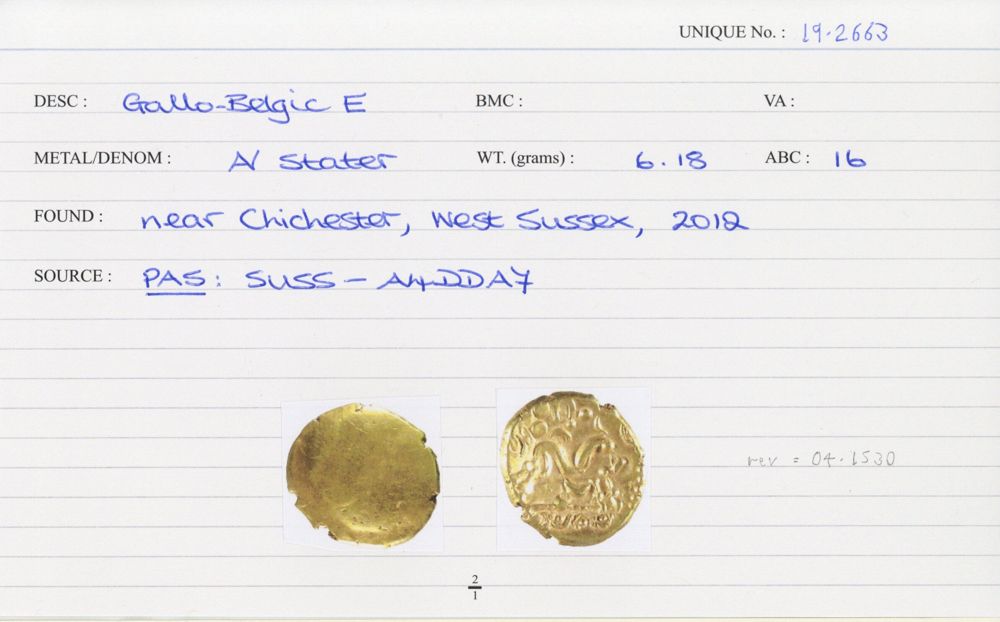 UNIQUE No. : 19.2663
DESC : Gallo-Belgic E BMC : VA :
METAL/DENOM : A/ Stater WT. (grams) : 6.18 ABC : 16
FOUND : near Chichester, West Sussex, 2012
SOURCE : PAS : SUSS - A4DDA7
rev = 04.1530
2
1